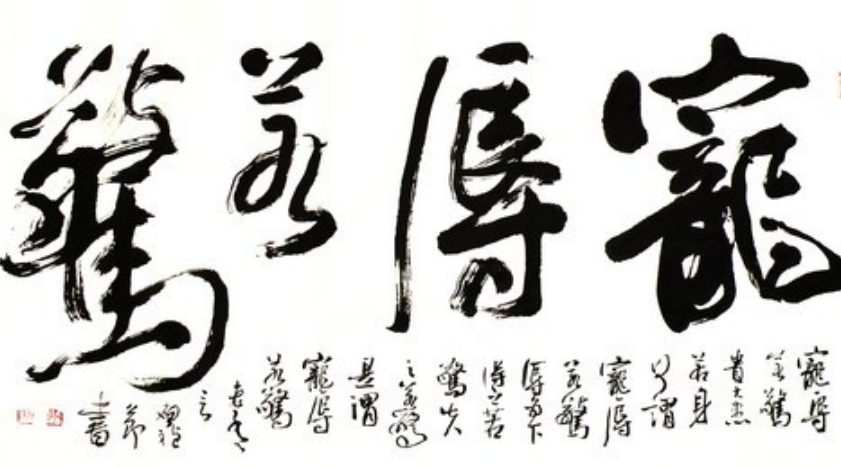 寵辱若驚
寵辱
若驚
貴大患
若身
何謂
寵辱
若驚
辱為下
得之若
驚失
之若驚
是謂
寵辱
若驚
老子
之言
節
書